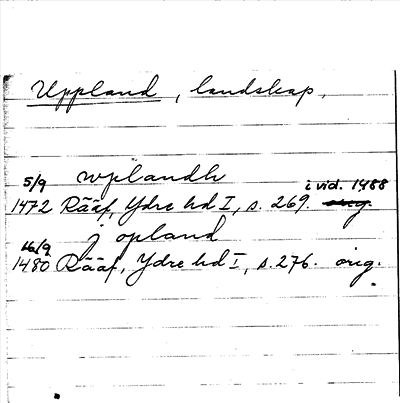 Uppland, landskap,
wplandh
5/9 i vid. 1488
1472 Rääf, Ydre hd I, s. 269. orig.
j opland
16/9
1480 Rääf, Ydre hd I, s. 276. orig.